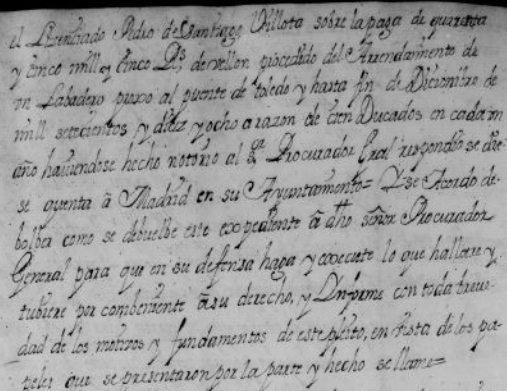 el Lizenciado Pedro de Santiago Villota sobre la paga de quarenta
y cinco mill y cinco Rs. de vellon procedido del Arrendamiento de
vn Labadero proxo al puente de toledo y hasta fin de Diciembre de
mill setecientos y diez y ocho a razon de cien Ducados en cada vn
año hauiendose hecho notorio al Sr. Procurador Gral respondio se die-
se quenta â Madrid en su Ayuntamiento= Y se Acordo de-
bolber como se debuelbe este expediente â dho señor Procurador
General para que en su defensa haga y execute lo que hallare y
tubiere por combeniente â su derecho, y Ynforme con toda breue-
dad de los motivos y fundamentos de este pleito, en vista de los pa-
peles que se presentaron por la parte y hecho se llame=